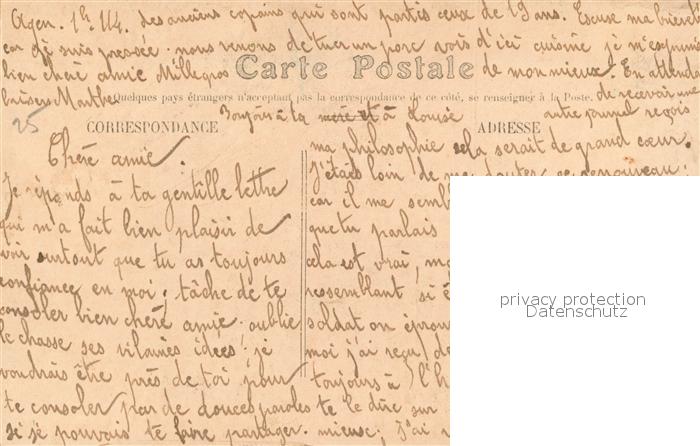 Agen. 1h. 1/4. des anciens copains qui sont partis ceux de 19 ans. Excuse ma brièveté
car je suis pressée. nous venons de tuer un porc vois d'ici cuisine je m'exprime
bien chère amie Mille gros de mon mieux. En attendant
baisers Marthe de recevoir une
Carte Postale
Quelques pays étrangers n'acceptent pas la correspondance de ce côté, se renseigner à la Poste.
Bonjour à ta mère et à Louise
autre journel reçois
25
CORRESPONDANCE
ADRESSE
Chère amie
Je réponds à ta gentille lettre
qui m'a fait bien plaisir de
voir surtout que tu as toujours
confiance en moi; tâche de te
consoler bien chère amie. oublie
le chasse ses vilaines idées! je
voudrais être près de toi pour
te consoler par de douces paroles te le dire sur
si je pouvais te faire partager mieux; J'ai
ma philosophie cela serait de grand cœur.
J'étais loin de me douter ce renouveau:
car il me semb
que tu parlais
cela est vrai, ma
ressemblant si é
soldat on éprouv
moi j'ai reçu de
toujours à l'h
privacy protection
Datenschutz